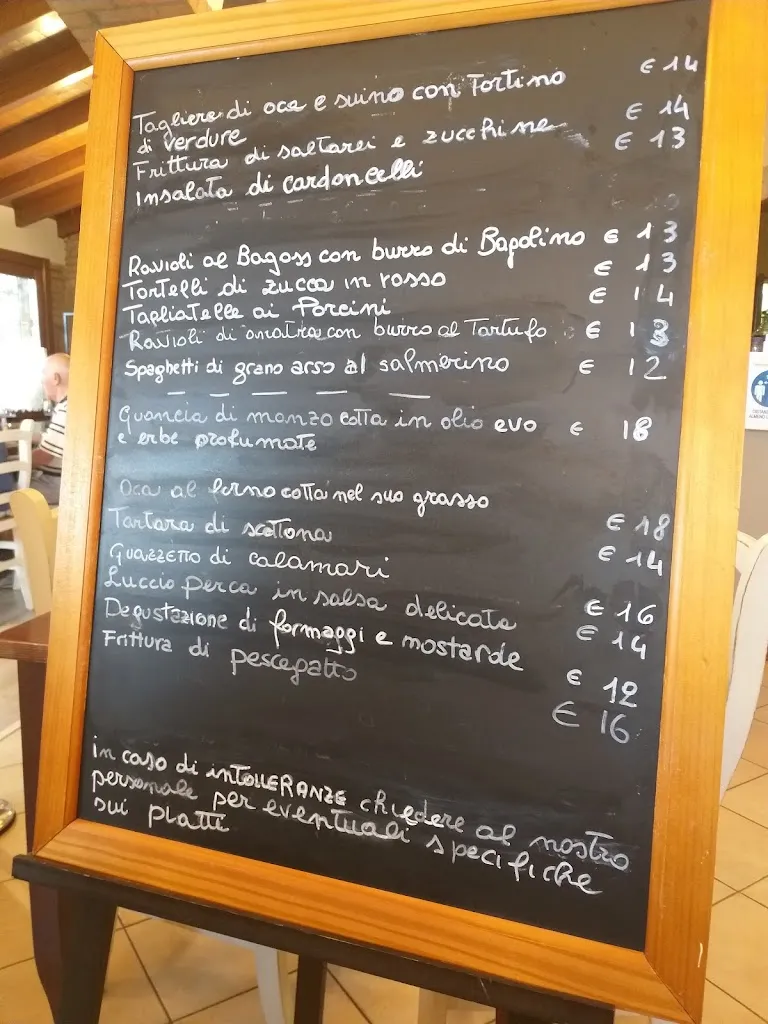 Tagliere di oca e suino con Tortino € 14
di verdure
Frittura di saltarei e zucchine € 14
Insalata di cardoncelli € 13
Ravioli al Bagoss con burro di Bapolino € 13
Tortelli di zucca in rosso € 13
Tagliatelle ai Porcini € 14
Ravioli di anatra con burro al Tartufo € 13
Spaghetti di grano arso al salmerino € 12
Guancia di manzo cotta in olio evo € 18
e erbe profumate
Oca al forno cotta nel suo grasso € 18
Tartara di scottona € 14
Guazzetto di calamari € 16
Luccio perca in salsa delicata € 14
Degustazione di formaggi e mostarde € 12
Frittura di pescegatto € 16
in caso di INTOLLERANZE chiedere al nostro
personale per eventuali specifiche
sui piatti